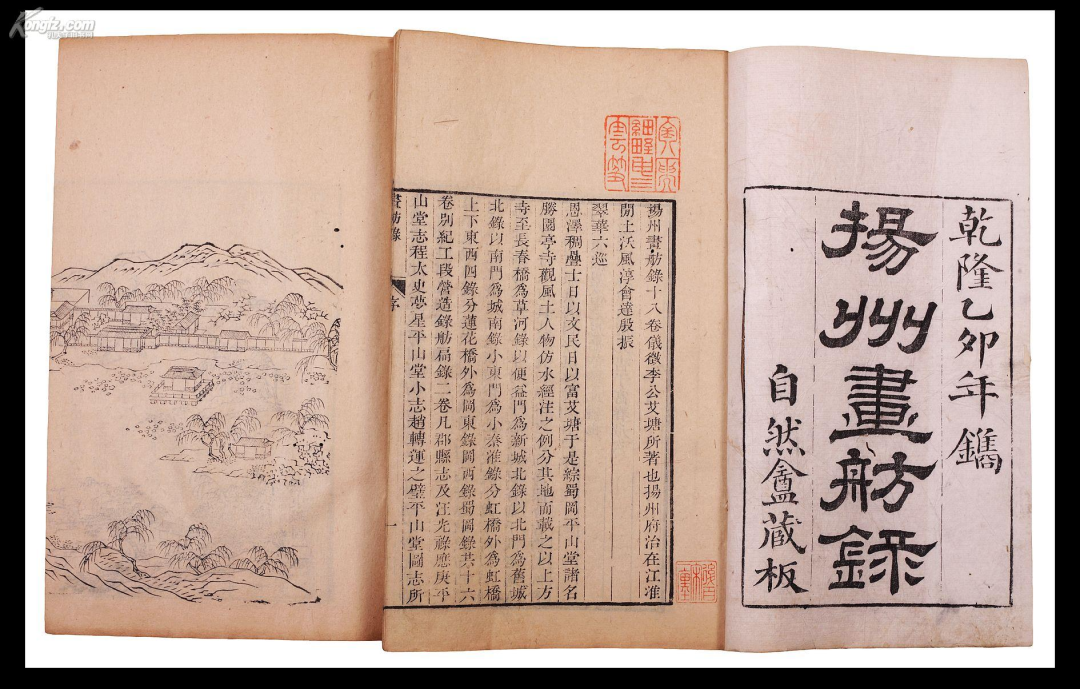 乾隆乙卯年鐫
揚州畫舫錄
自然盦藏板
揚州畫舫錄十八卷儀徵李公艾塘所著也揚州府治在江淮
間土沃風淳會達殷振
翠華六巡
恩澤稠疊士日以文民日以富艾塘于是綜蜀岡平山堂諸名
勝園亭寺觀風土人物仿水經注之例分其地而載之以上方
寺至長春橋為草河錄以便益門為新城北錄以北門為舊城
北錄以南門為城南錄小東門為小秦淮錄分虹橋外為虹橋
上下東西四錄分蓮花橋外為岡東錄岡西錄蜀岡錄共十六
卷別紀工段營造錄舫扁錄二卷凡郡縣志及汪先祿應庚平
山堂志程太史夢星平山堂小志趙轉運之壁平山堂圖志所
畫舫錄
序
一
Kongfz.com